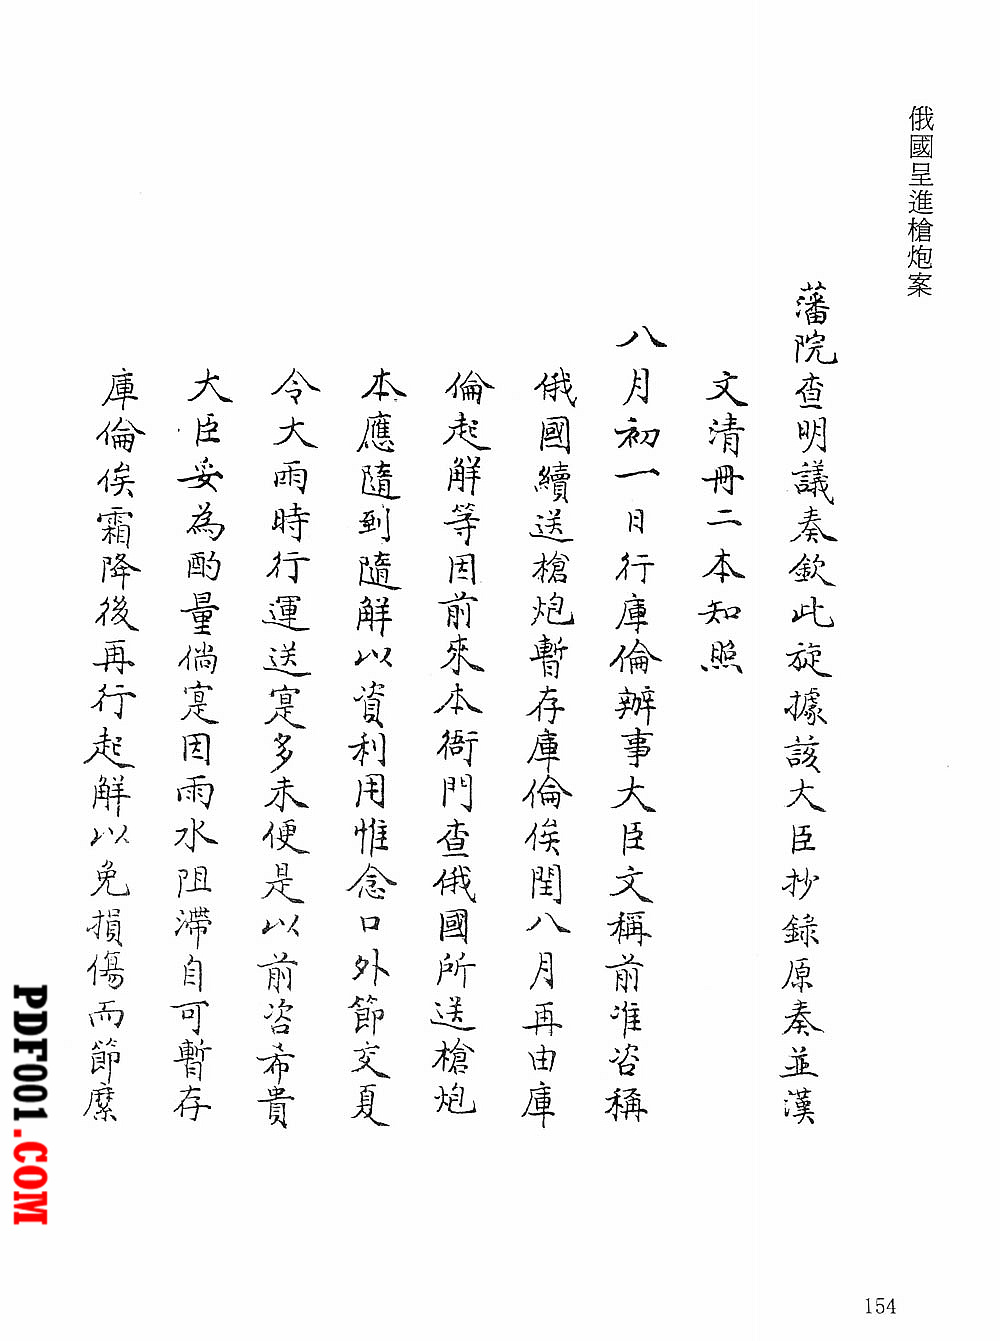 俄國呈進槍炮案
藩院查明議奏欽此旋據該大臣抄錄原奏並漢
文清冊二本知照
八月初一日行庫倫辦事大臣文稱前准咨稱
俄國續送槍炮暫存庫倫俟閏八月再由庫
倫起解等因前來本衙門查俄國所送槍炮
本應隨到隨解以資利用惟念口外節交夏
令大雨時行運送寔多未便是以前咨希貴
大臣妥為酌量倘寔因雨水阻滯自可暫存
庫倫俟霜降後再行起解以免損傷而節縻
PDF001.COM
154